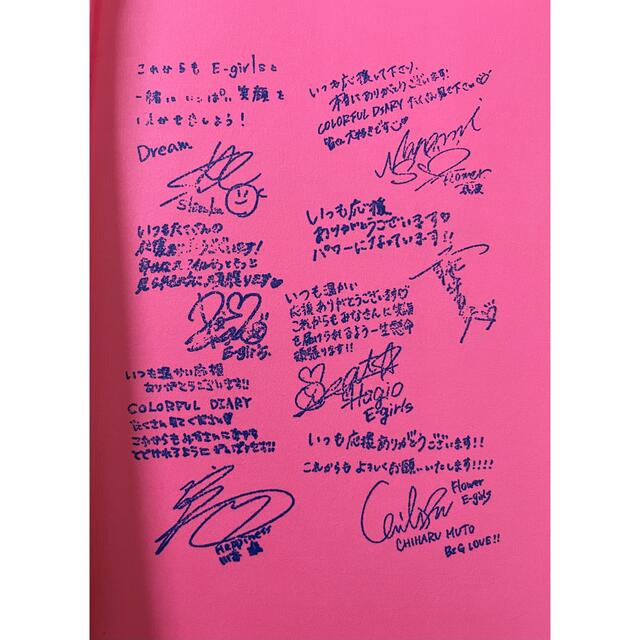 これからも E-girlsと
一緒にいっぱい笑顔を
いつも応援して下さり、
本当にありがとうございます!
COLORFUL DIARY たくさん見て下さい♡
皆さん大好きです
Dream
Shizuka
Flower
いつも応援
ありがとうございます♡
パワーになっています!!
いつもたくさんの
応援ありがとうございます!
E-girls.
いつも温かい
応援ありがとうございます♡
これからもみなさんに笑顔
を届けられるよう一生懸命
頑張ります!!
Hagio
E-girls
いつも温かい応援
ありがとうございます!!
COLORFUL DIARY
たくさん見てください♡
これからもみなさんに
とどけれるように がんばります!!
Happiness
いつも応援ありがとうございます!!
これからも よろしくお願いいたします!!!!
Flower
E-girls
CHIHARU MUTO
B&G LOVE!!